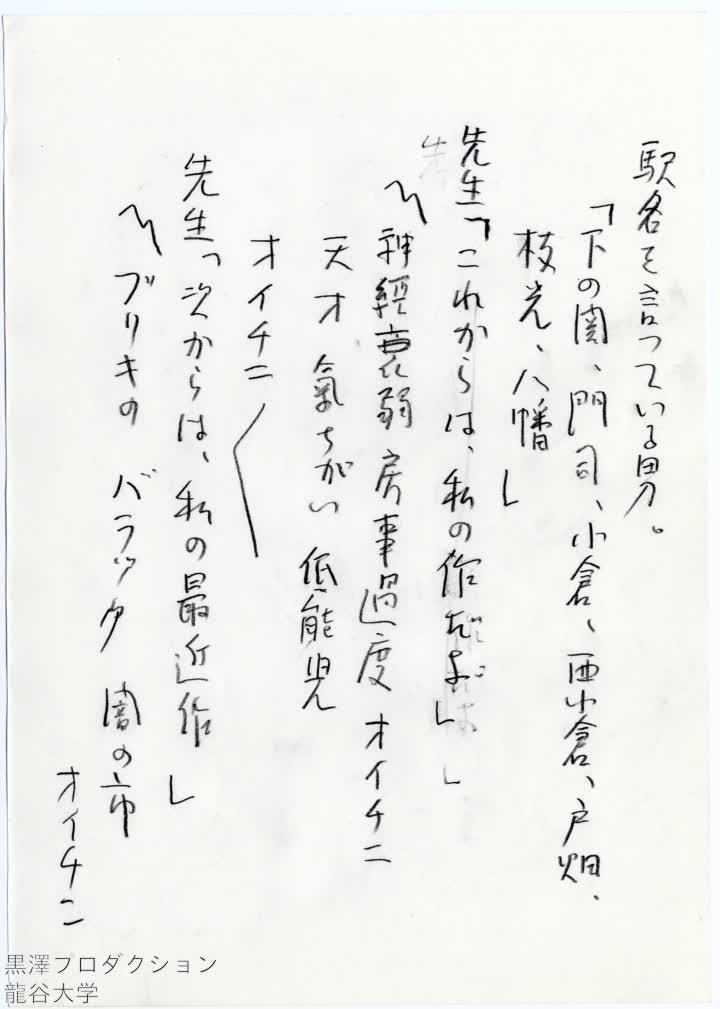 駅名を言っている男。
「下の関、門司、小倉、西小倉、戸畑、
枝光、八幡」
先生「これからは、私の作だよ」
〽神経衰弱 房事過度 オイチニ
天才 氣ちがい 低能児
オイチニ
先生「次からは、私の最近作」
〽ブリキの バラック 闇の市
オイチニ
黒澤プロダクション
龍谷大学